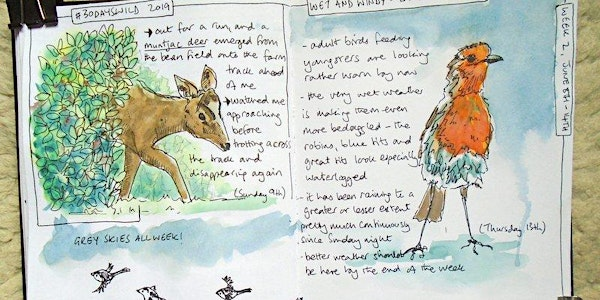 #30DAYSWILD 2019
→ out for a run, and a
muntjac deer emerged from
the bean field onto the farm
track ahead
of me
→ watched me
approaching
before
trotting across
the track and
disappearing again
(Sunday 9th)
GREY SKIES ALL WEEK!
WET AND WINDY
- adult birds feeding
youngsters are looking
rather worn by now
the very wet weather
is making them even
more bedraggled - the
robins, blue tits and
great tits look especially
waterlogged
- it has been raining to a
greater or lesser extent
pretty much continuously
since Sunday night
- better weather should
be here by the end of the week
(Thursday 13th)
WEEK 2, JUNE 8TH - 14TH